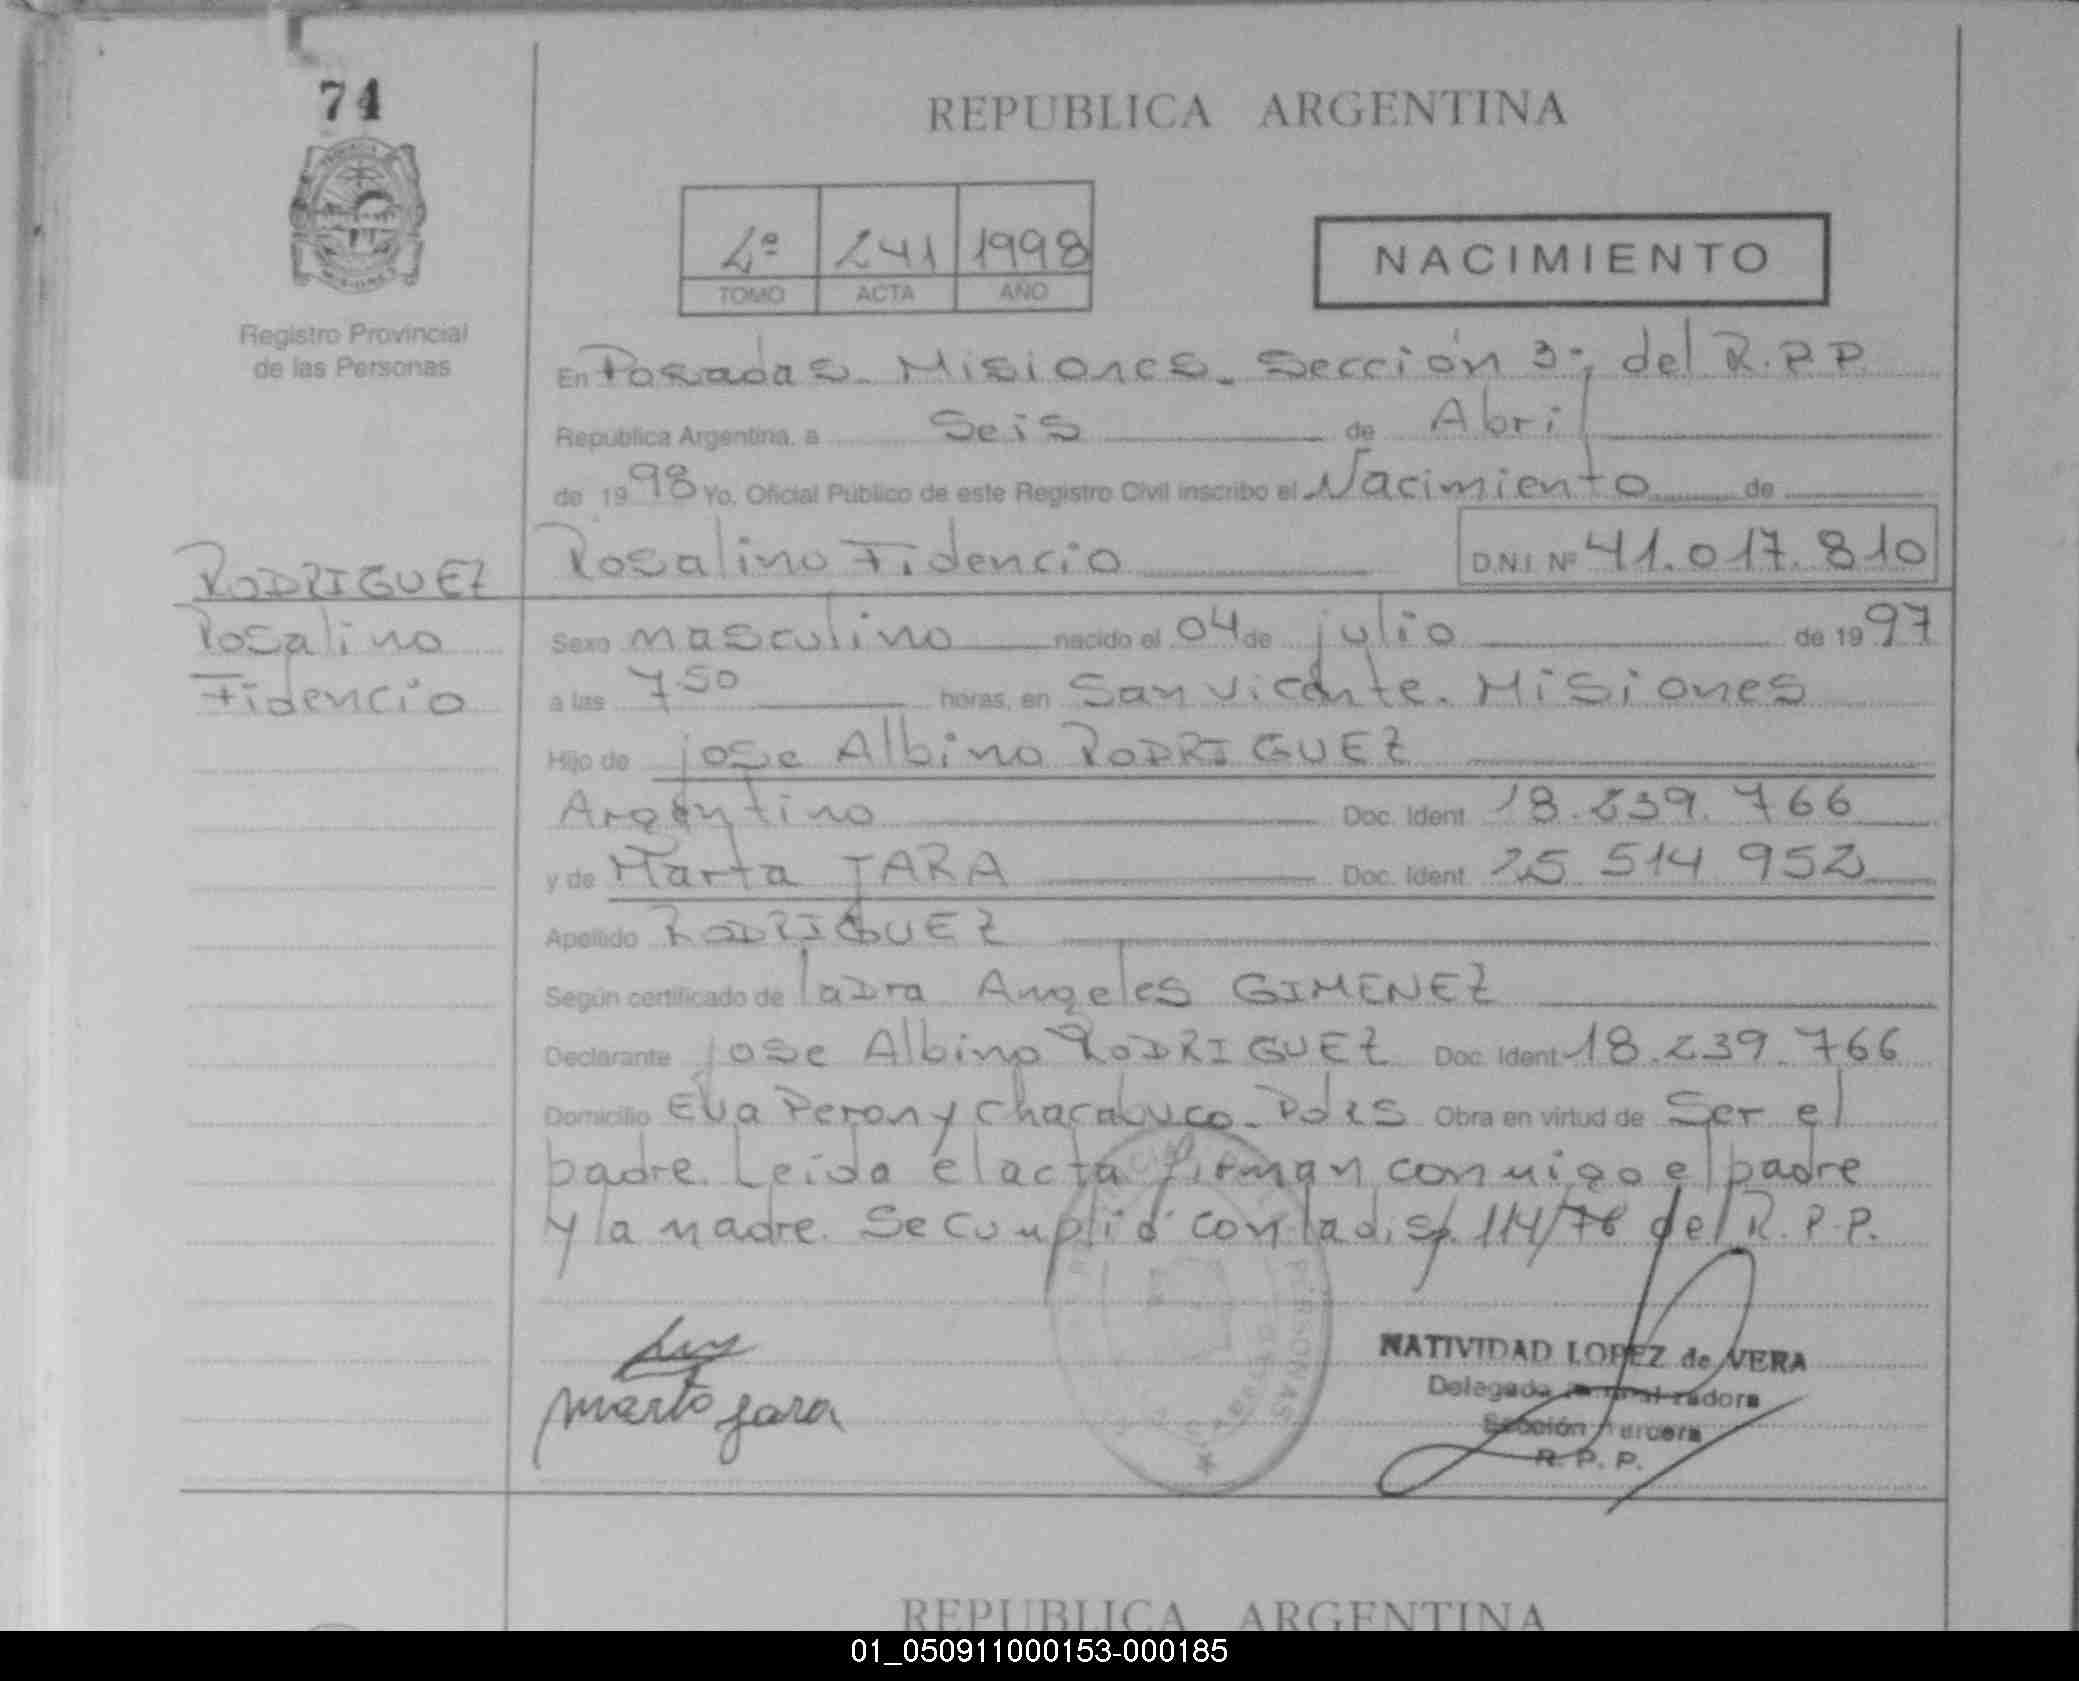 74
REPUBLICA ARGENTINA
2º 241 1998
TOMO ACTA AÑO
NACIMIENTO
Registro Provincial
de las Personas
En Posadas. Misiones. Sección 3ª del R.P.P.
Republica Argentina, a Seis de Abril
de 1998 Yo, Oficial Público de este Registro Civil inscribo el Nacimiento de
RODRIGUEZ
Rosalino
Fidencio
Rosalino Fidencio D.N.I Nº 41.017.810
Sexo masculino nacido el 04 de julio de 1997
a las 7 50 horas, en San Vicente. Misiones
Hijo de jose Albino RODRIGUEZ
Argentino Doc. Ident 18.239.766
y de Marta JARA Doc. Ident 25 514 952
Apellido RODRIGUEZ
Según certificado de la Dra Angeles GIMENEZ
Declarante jose Albino RODRIGUEZ Doc. Ident 18.239.766
Domicilio Eva Peron y Chacabuco. Pdas Obra en virtud de Ser el
padre. Leida el acta firman conmigo el padre
y la madre. Se cumplió con la disp. 114/78 del R.P.P.
Marta Jara
NATIVIDAD LOPEZ de VERA
Delegada
Sección Tercera
R. P. P.
PERSONAS
REPUBLICA ARGENTINA
01_050911000153-000185